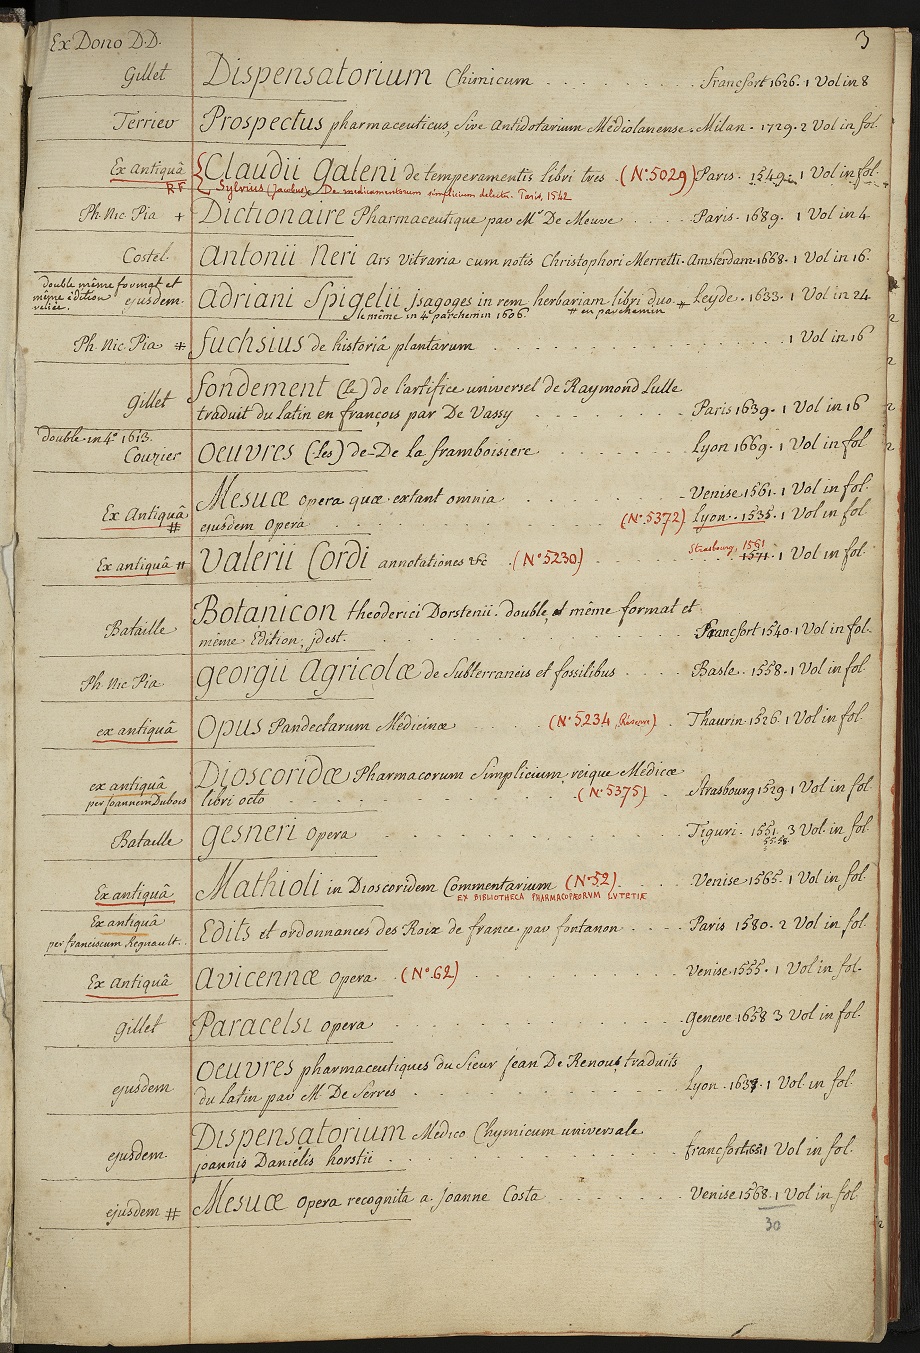 Ex Dono D.D.
3
Gillet Dispensatorium Chimicum . . . . . . . . francfort 1626. 1 Vol in 8
Terrier Prospectus pharmaceuticus, Sive Antidotarium Médiolanense. Milan. 1729. 2 Vol in fol.
Ex Antiquâ Claudii Galeni de temperamentis libri tres (N°. 5029) Paris. 1549. 1 Vol in fol.
R F Sylvius (Jacobus). De medicamentorum simplicium delectu. Paris, 1542
Ph. Nic. Pia + Dictionaire Pharmaceutique par Mr. De Meuve . . . . Paris. 1689. 1 Vol in 4
Costel. Antonii Neri Ars Vitraria cum notis Christophori Merretti. Amsterdam. 1668. 1 Vol in 16.
double même format et
même édition
reliée. ejusdem. Adriani Spigelii, jsagoges in rem herbariam libri duo. # Leyde. 1633. 1 Vol in 24
le même in 4° parchemin 1606. # en parchemin
Ph. Nic. Pia # fuchsius de historiâ plantarum . . . . . . . . 1 Vol in 16
fondement (le) de l'artifice universel de Raymond Lulle
Gillet traduit du latin en françois par De Vassy . . . . . Paris 1639. 1 Vol in 16
double in 4° 1613.
Couzier Oeuvres (les) de De la framboisiere . . . . . . Lyon 1669. 1 Vol in fol
Mesuæ opera quæ extant omnia . . . . . . Venise 1561. 1 Vol in fol.
Ex Antiquâ # ejusdem Opera . . . . . . (N°. 5372) Lyon. 1535. 1 Vol in fol
Strasbourg, 1561
Ex antiquâ # Valerii Cordi annotationes &c. (N° 5230) . . . . . 1571. 1 Vol in fol
Botanicon theoderici Dorstenii. double, et même format et
Bataille même Edition, jdest. . . . . . . . . Francfort 1540. 1 Vol in fol.
Ph Nic Pia georgii Agricolæ de Subterraneis et fossilibus . . . . Basle. 1558. 1 Vol in fol
ex antiquâ Opus Pandectarum Médicinæ . . . . (N°. 5234, Réserve) . Thaurin 1526. 1 Vol in fol.
Dioscoridæ Pharmacorum Simplicium, reique Médicæ
ex antiquâ
per Joannem Dubois libri octo . . . . . . . . (N°. 5375) . Strasbourg 1529 1 Vol in fol.
Bataille gesneri Opera . . . . . . . . Tiguri. 1551. 3 Vol. in fol
55. 58.
Ex antiquâ Mathioli in Dioscoridem Commentarium (N°. 52) . . . Venise 1565. 1 Vol in fol.
EX BIBLIOTHECA PHARMACOPÆORVM LVTETIÆ
Ex antiquâ
per franciscum Regnault. Edits et ordonnances des Roix de france par fontanon . . . . Paris 1580. 2 Vol in fol.
Ex Antiquâ Avicennæ Opera. (N°. 62) . . . . . . . Venise 1555. 1 Vol in fol.
gillet Paracelsi opera . . . . . . . . Geneve 1658 3 Vol in fol.
Oeuvres pharmaceutiques du Sieur Jean De Renou, traduits
ejusdem du latin par M. De Serres . . . . . . . Lyon. 1637. 1 Vol in fol.
Dispensatorium Medico Chymicum universale
ejusdem. joannis Danielis horstii . . . . . . . . francfort 1651 1 Vol in fol.
ejusdem # Mesuæ Opera recognita a Joanne Costa . . . . . . Venise 1568. 1 Vol in fol.
30